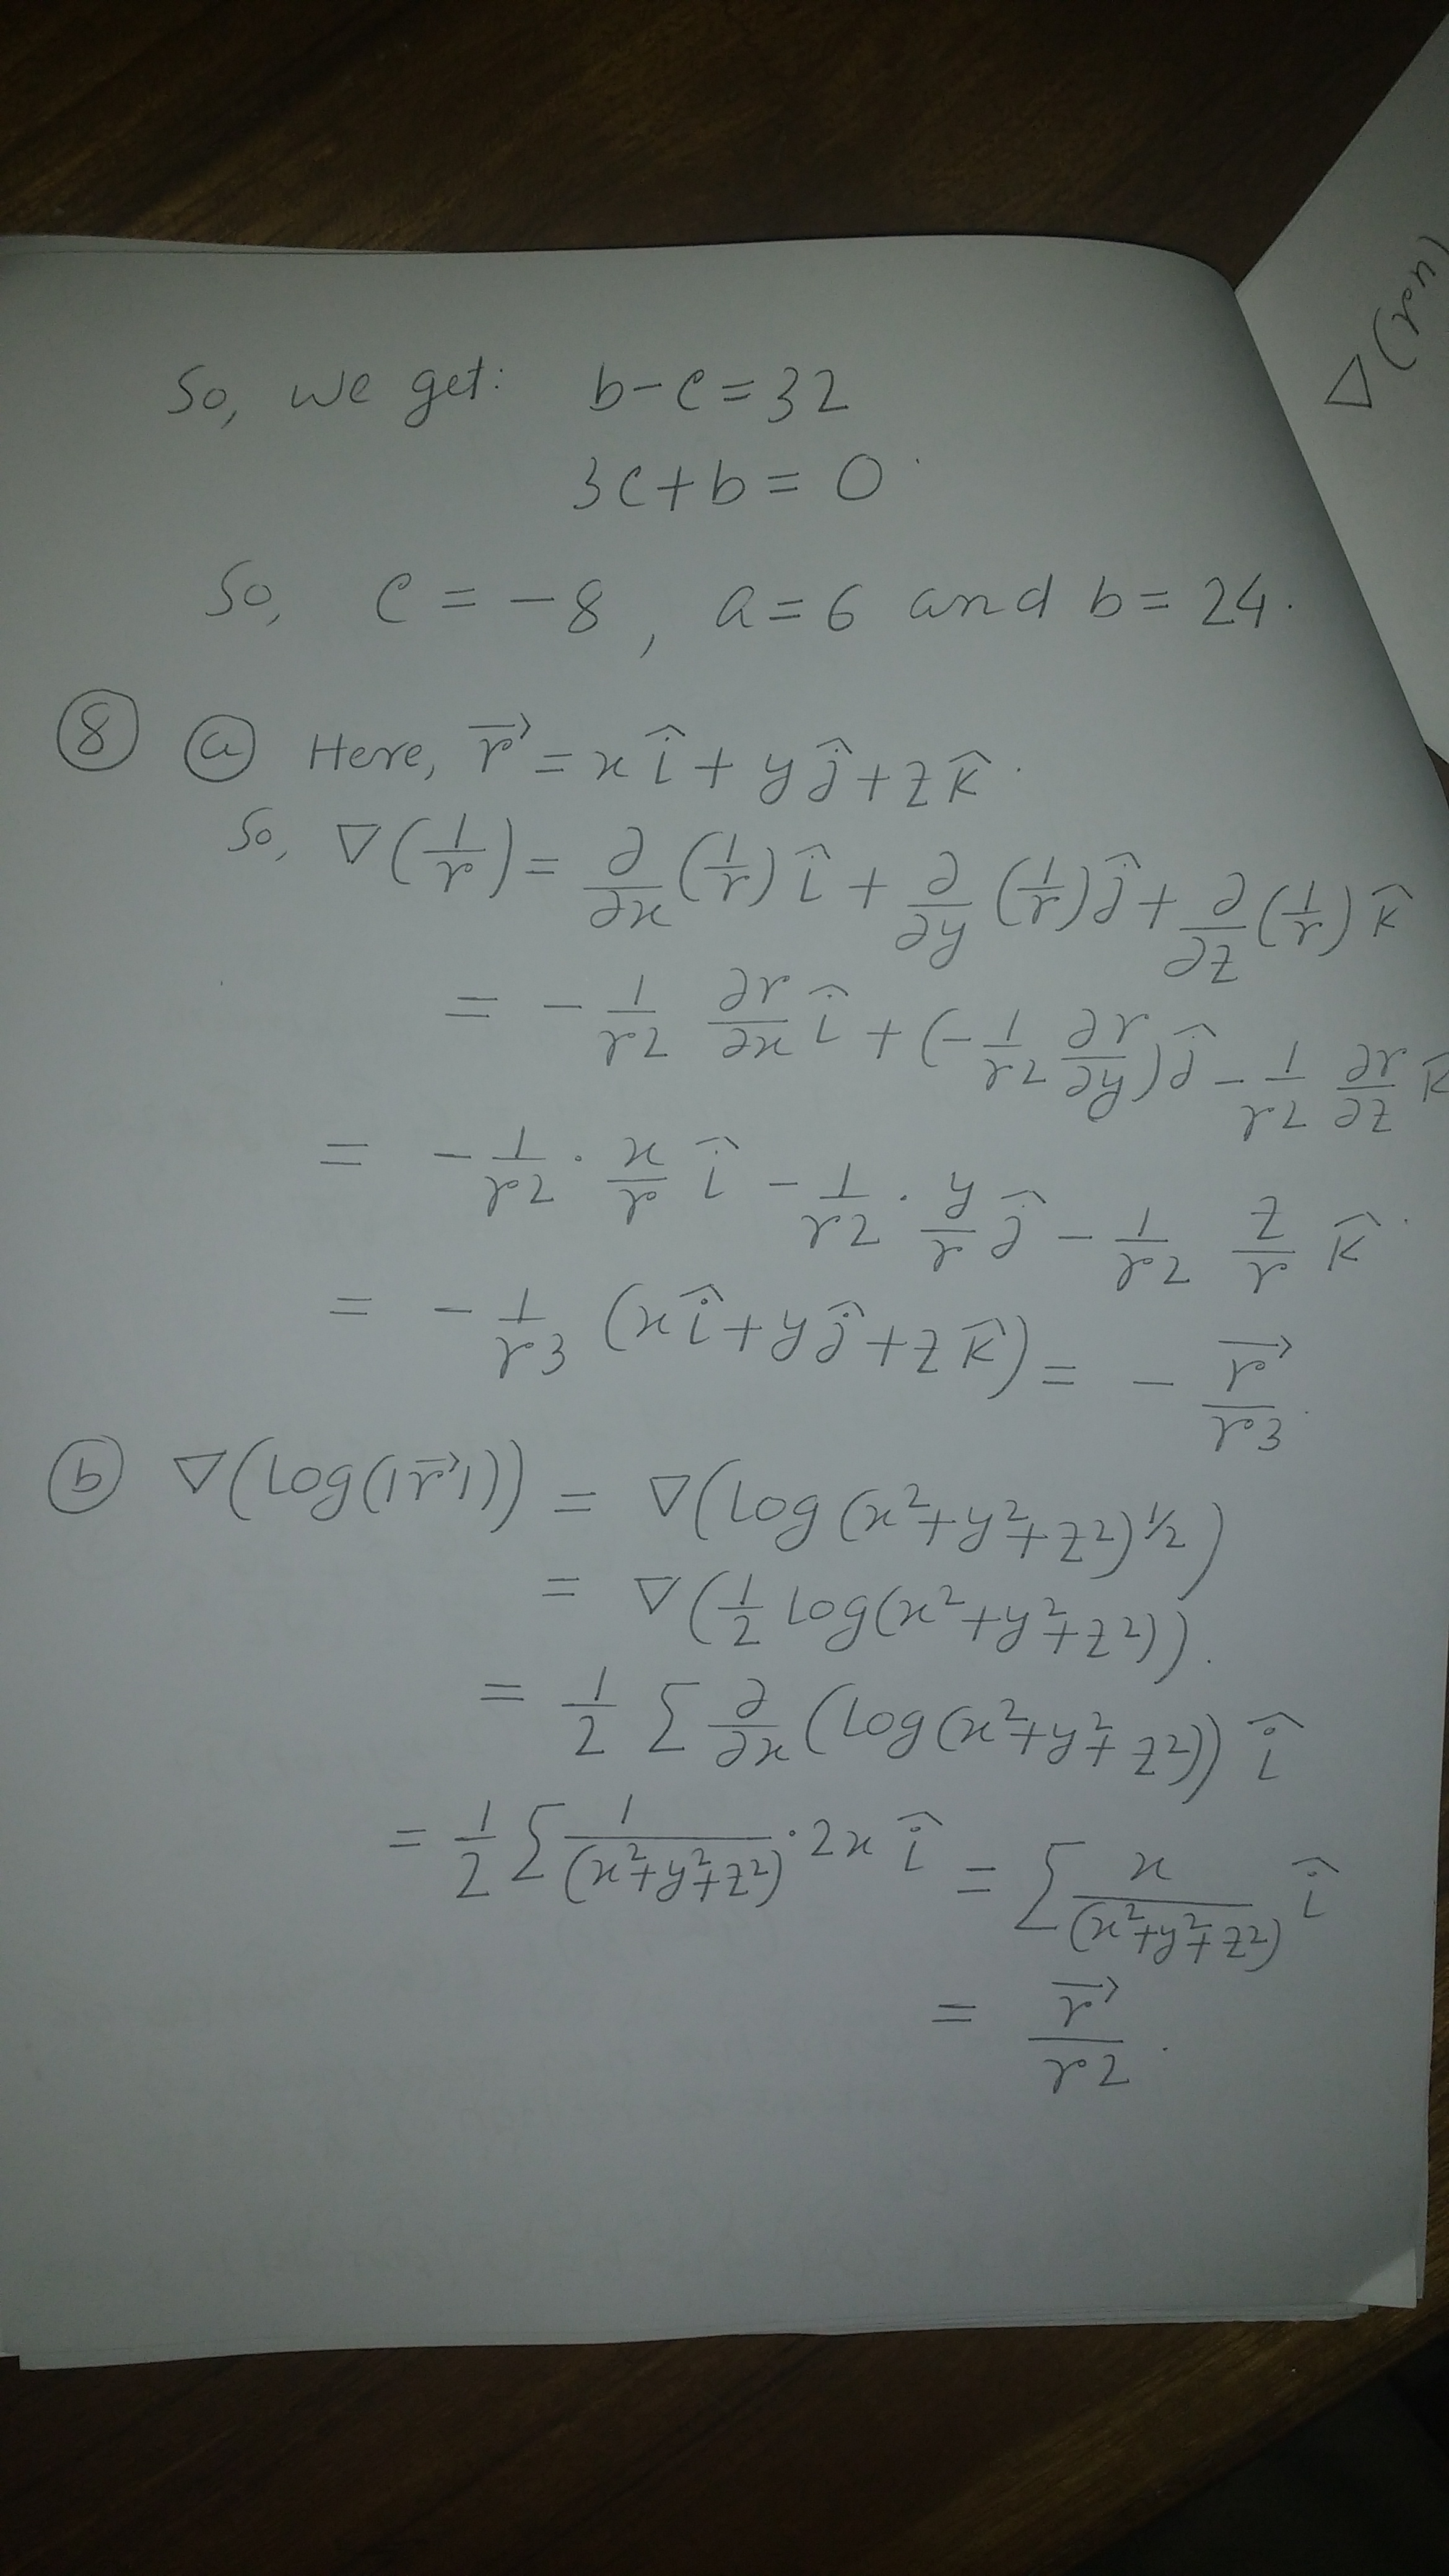 So, we get: b-c=32
3c+b=0.
So, c=-8, a=6 and b=24.
⑧ ⓐ Here, r⃗ = xî + yĵ + zk̂.
So, ∇(1/r) = ∂/∂x (1/r) î + ∂/∂y (1/r) ĵ + ∂/∂z (1/r) k̂
= - 1/r² ∂r/∂x î + (- 1/r² ∂r/∂y) ĵ - 1/r² ∂r/∂z k̂
= - 1/r² · x/r î - 1/r² · y/r ĵ - 1/r² z/r k̂.
= - 1/r³ (xî + yĵ + zk̂) = - r⃗/r³.
ⓑ ∇(log(|r⃗|)) = ∇(log(x²+y²+z²)^1/2)
= ∇(1/2 log(x²+y²+z²)).
= 1/2 ∑ ∂/∂x (log(x²+y²+z²)) î
= 1/2 ∑ 1/(x²+y²+z²) · 2x î = ∑ x/(x²+y²+z²) î
= r⃗/r².
∇(rn)